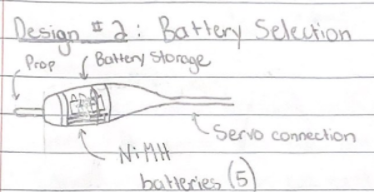 Design #2: Battery Selection
Prop
Battery Storage
Servo connection
NiMH
batteries (5)